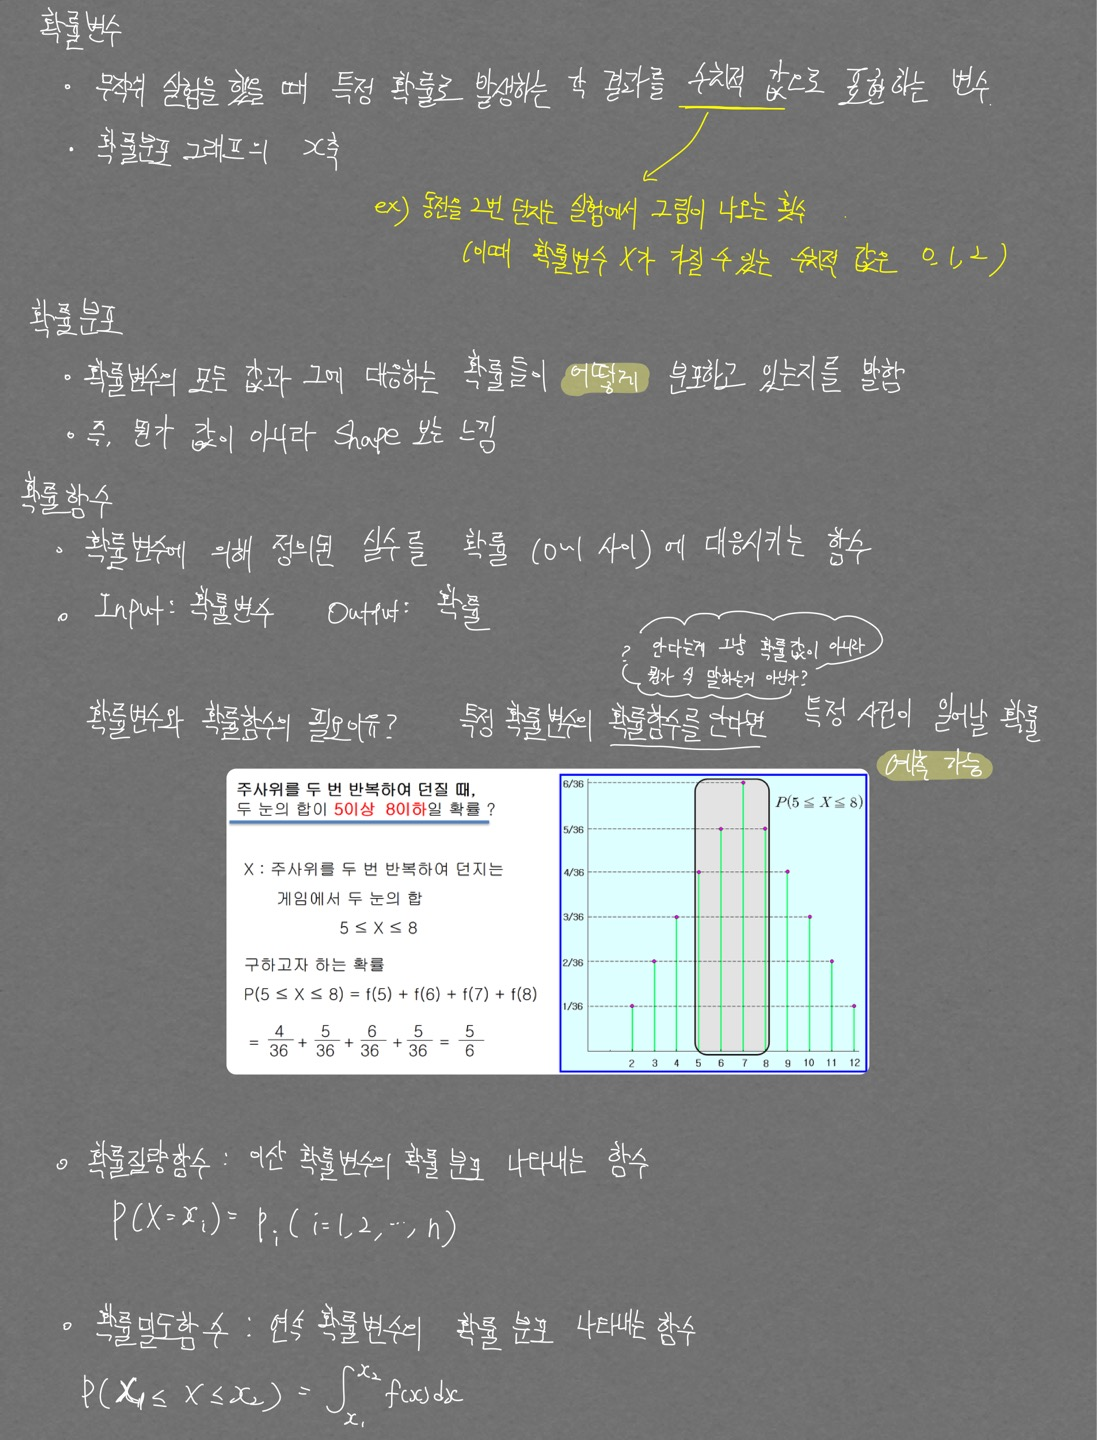 확률변수
· 무작위 실험을 했을 때 특정 확률로 발생하는 각 결과를 수치적 값으로 표현하는 변수.
· 확률분포 그래프의 x축
ex) 동전을 2번 던지는 실험에서 그림이 나오는 횟수
(이때 확률변수 X가 가질 수 있는 수치적 값은 0, 1, 2)
확률분포
· 확률변수의 모든 값과 그에 대응하는 확률들이 어떻게 분포하고 있는지를 말함
· 즉, 뭔가 값이 아니라 Shape 보는 느낌
확률함수
· 확률변수에 의해 정의된 실수를 확률 (0~1 사이)에 대응시키는 함수
· Input: 확률변수 Output: 확률
? 안다는게 그냥 확률값이 아니라
뭔가 식 말하는거 아닌가?
확률변수와 확률함수의 필요이유? 특정 확률변수의 확률함수를 안다면 특정 사건이 일어날 확률
예측 가능
주사위를 두 번 반복하여 던질 때,
두 눈의 합이 5이상 8이하일 확률 ?
X : 주사위를 두 번 반복하여 던지는
게임에서 두 눈의 합
5 ≤ X ≤ 8
구하고자 하는 확률
P(5 ≤ X ≤ 8) = f(5) + f(6) + f(7) + f(8)
= 4/36 + 5/36 + 6/36 + 5/36 = 5/6
P(5 ≦ X ≦ 8)
6/36
5/36
4/36
3/36
2/36
1/36
2 3 4 5 6 7 8 9 10 11 12
· 확률질량함수 : 이산 확률변수의 확률 분포 나타내는 함수
P(X=xᵢ) = pᵢ (i=1, 2, ..., n)
· 확률밀도함수 : 연속 확률변수의 확률 분포 나타내는 함수
P(x₁ ≤ X ≤ x₂) = ∫_{x₁}^{x₂} f(x)dx